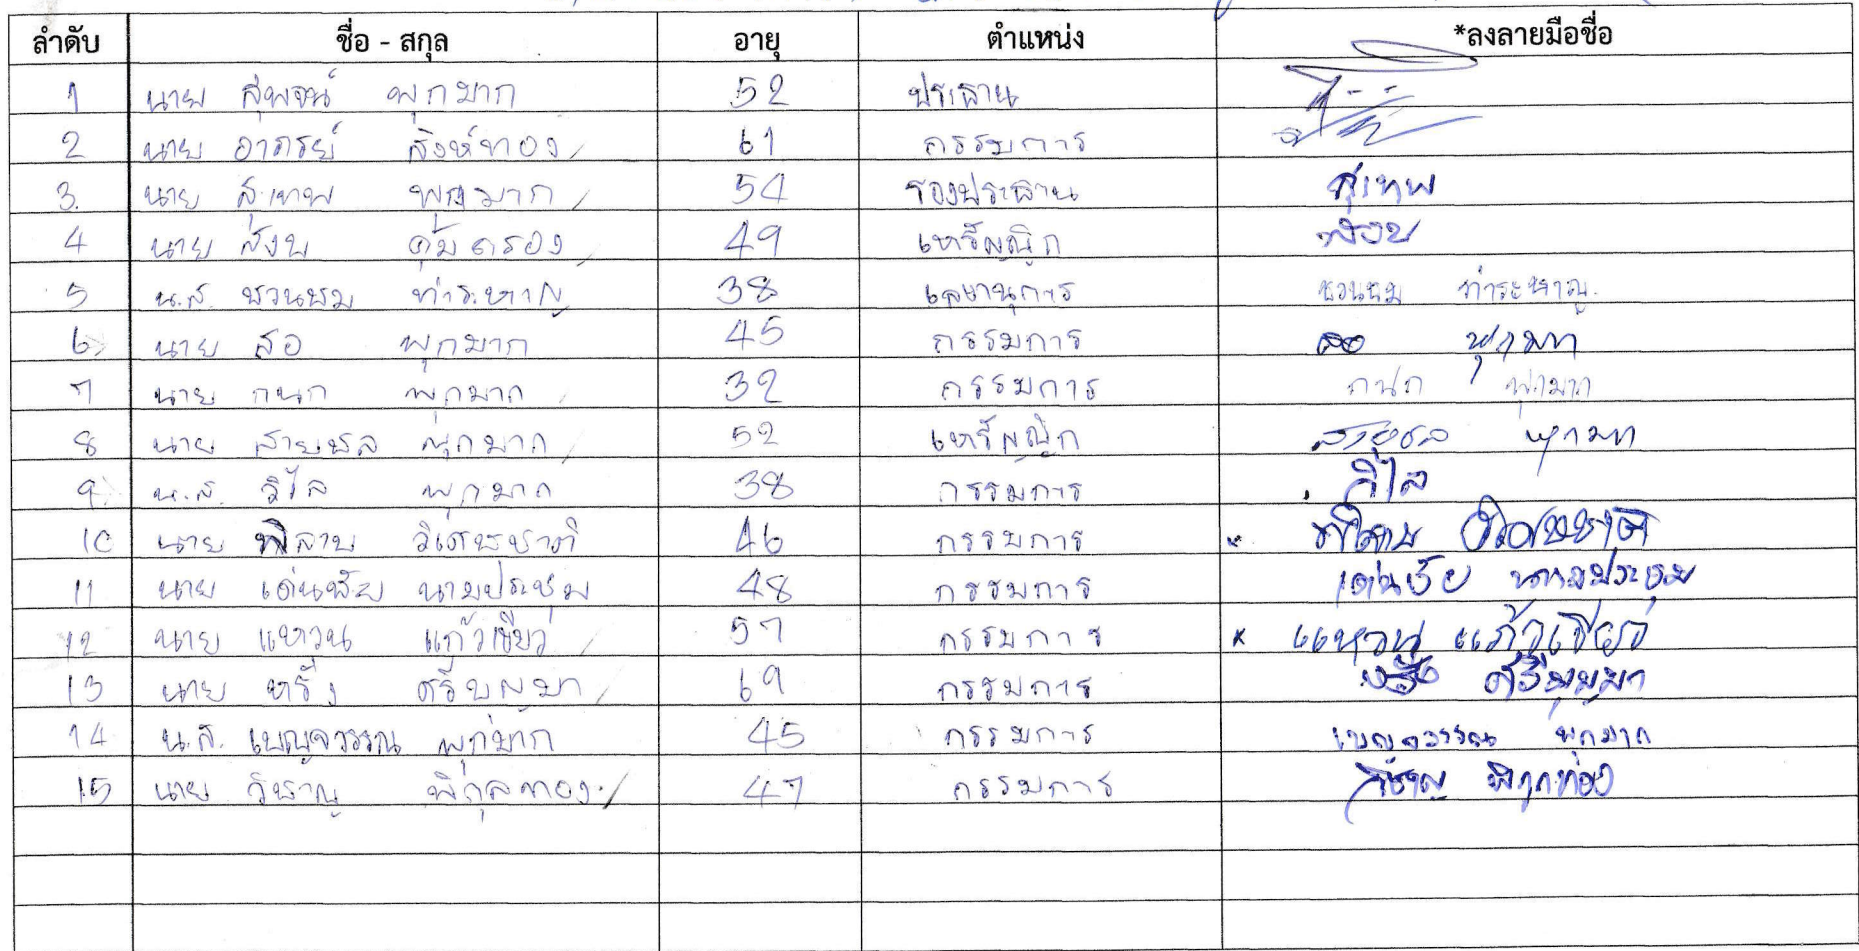 ลำดับ ชื่อ - สกุล อายุ ตำแหน่ง *ลงลายมือชื่อ
1 นาย สุพจน์ พุกมาก 52 ประธาน
2 นาย อาภรย์ สิงห์ทอง 61 กรรมการ
3. นาย สุเทพ พุกมาก 54 รองประธาน สุเทพ
4 นาย สงบ คุ้มครอง 49 เหรัญญิก สงบ
5 น.ส. ชวนชม ท่าระหาญ 38 เลขานุการ ชวนชม ท่าระหาญ
6 นาย สอ พุกมาก 45 กรรมการ สอ พุกมาก
7 นาย กนก พุกมาก 32 กรรมการ กนก พุกมาก
8 นาย สายชล พุกมาก 52 เหรัญญิก สายชล พุกมาก
9 น.ส. วิไล พุกมาก 38 กรรมการ วิไล
10 นาย พิลาบ วิเศษชาติ 46 กรรมการ
11 นาย เด่นชัย นามประชุม 48 กรรมการ เด่นชัย นามประชุม
12 นาย แหวน แก้วเขียว 57 กรรมการ × แหวน แก้วเขียว
13 นาย หรั่ง ศรีบุญมา 69 กรรมการ หรั่ง ศรีบุญมา
14 น.ส. เบญจวรรณ พุกมาก 45 กรรมการ เบญจวรรณ พุกมาก
15 นาย วิชาญ พิกุลทอง 47 กรรมการ วิชาญ พิกุลทอง